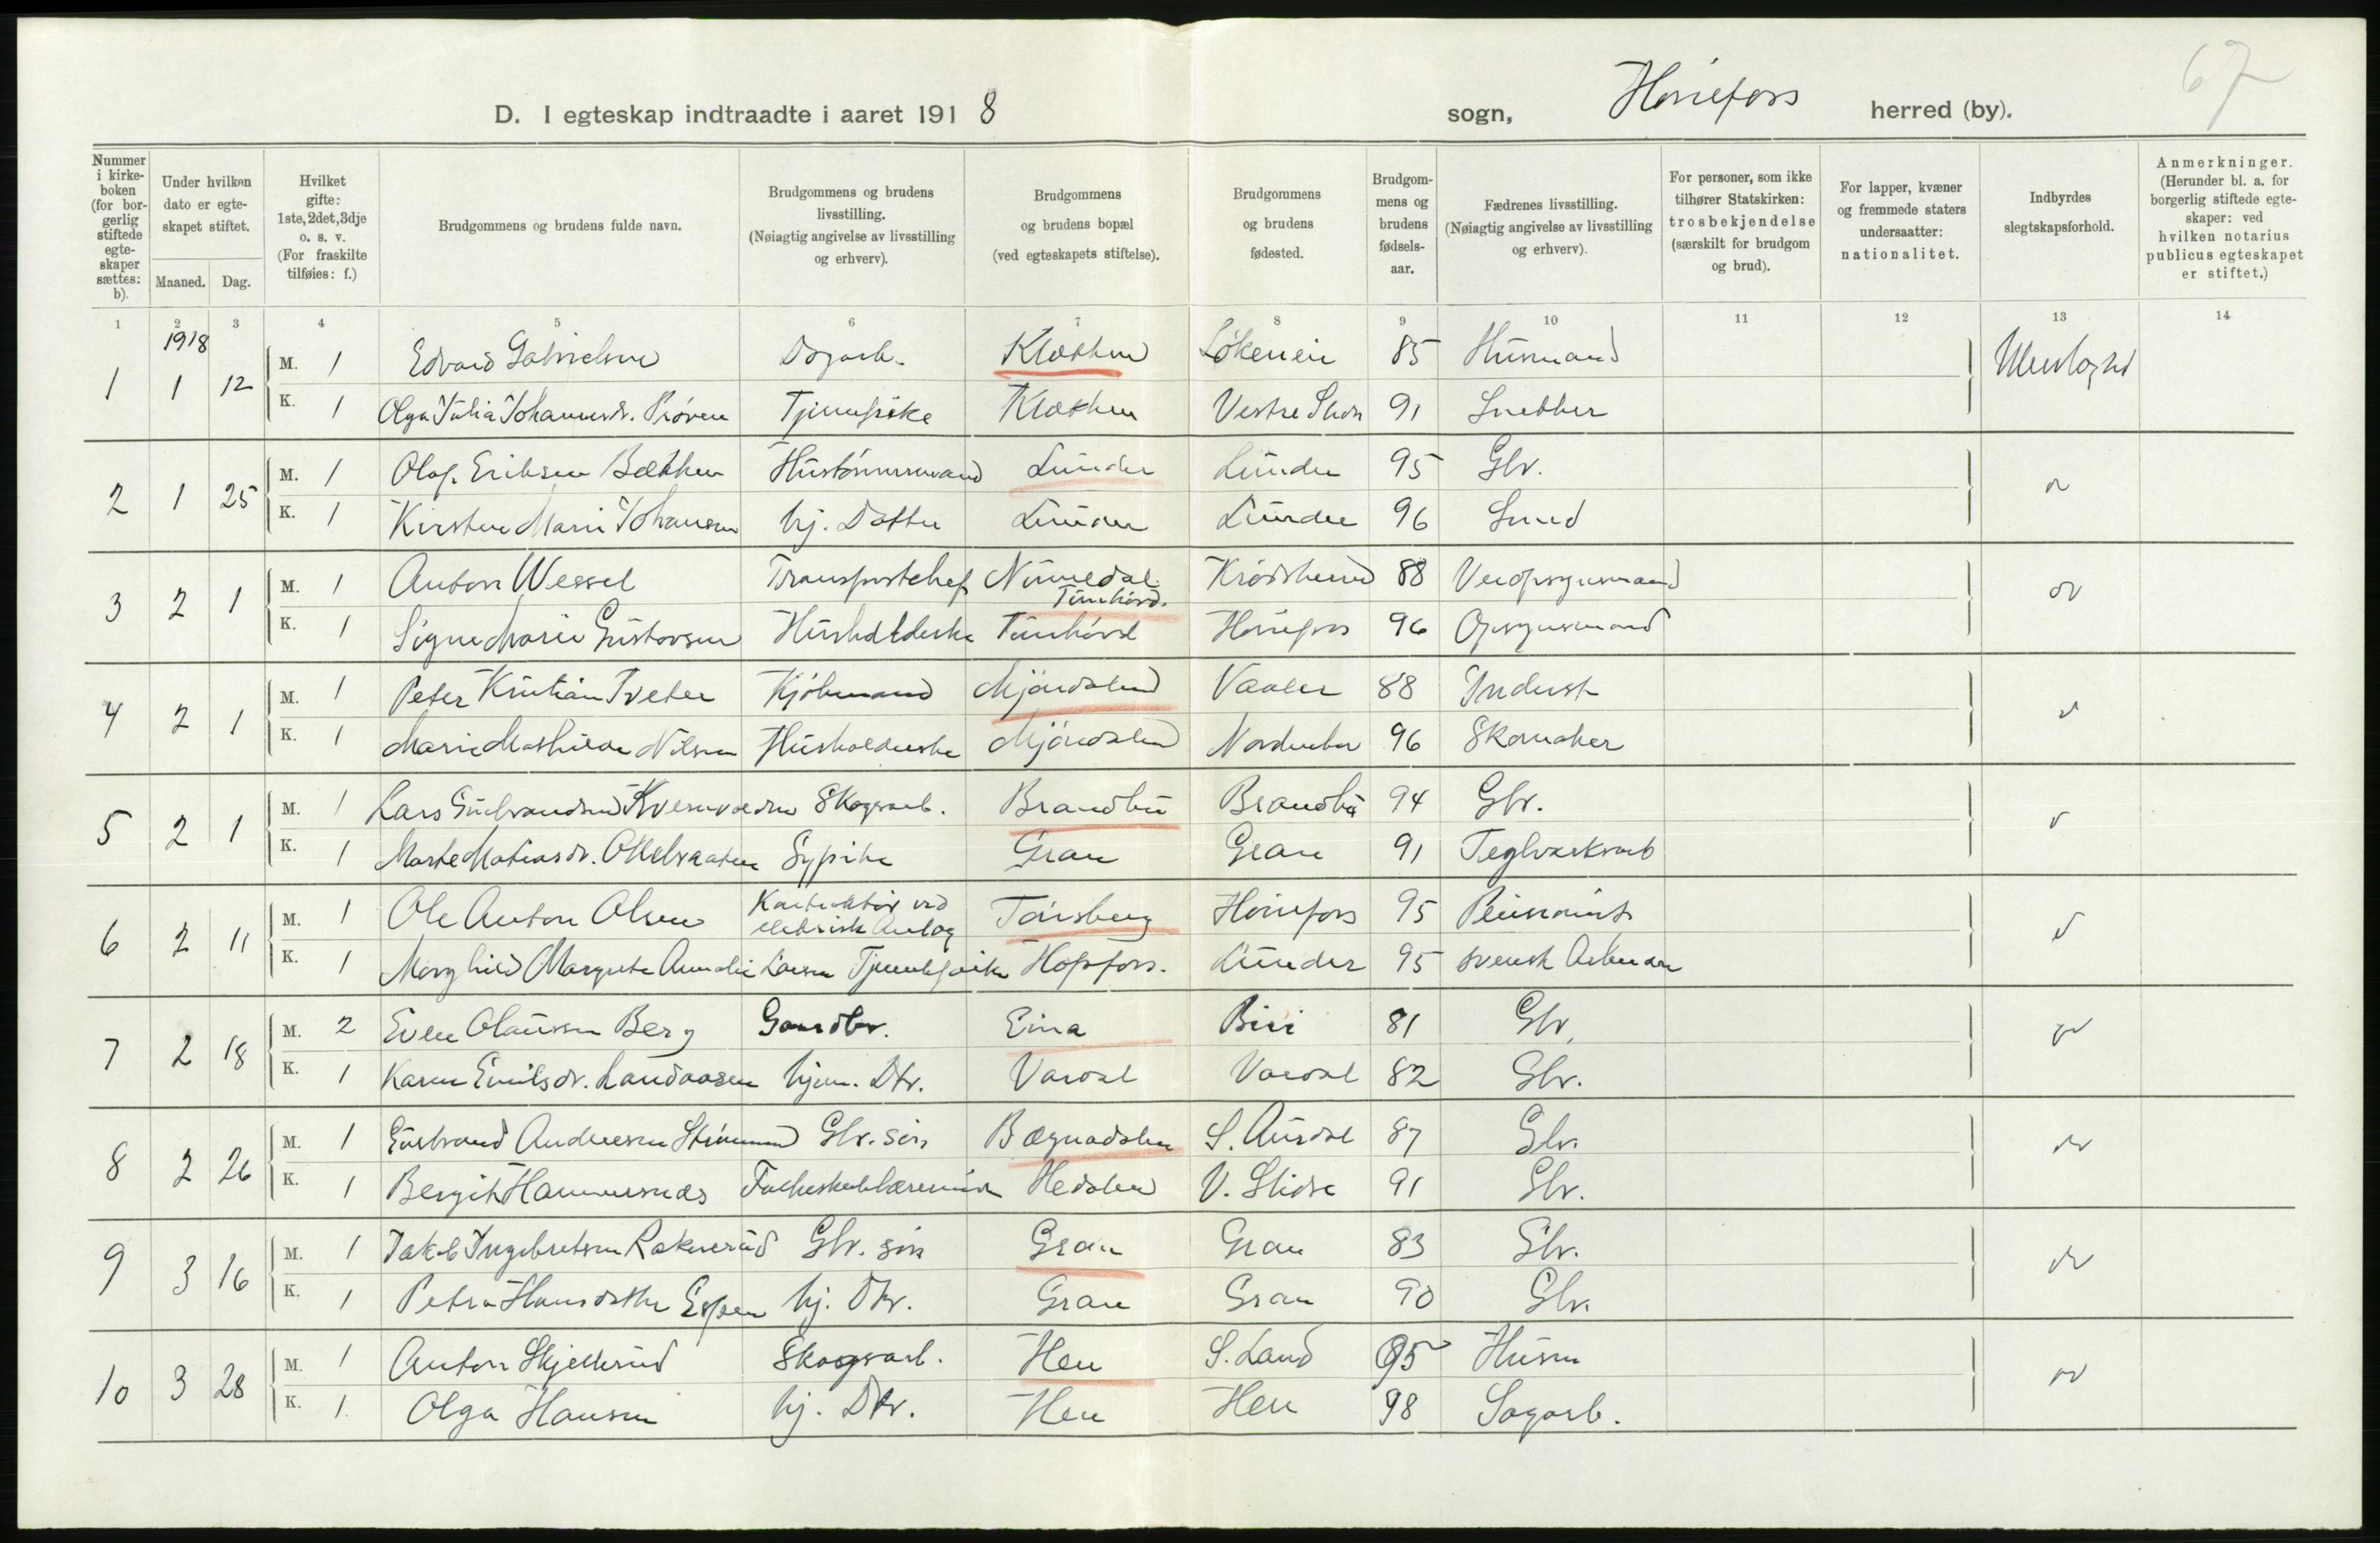 67
D. I egteskap indtraadte i aaret 1918 sogn, Hønefoss herred (by).
Nummer i kirkeboken (for borgerlig stiftede egteskaper sættes: b).
Under hvilken dato er egteskapet stiftet.
Maaned. Dag.
Hvilket gifte: 1ste, 2det, 3dje o. s. v. (For fraskilte tilføies: f.)
Brudgommens og brudens fulde navn.
Brudgommens og brudens livsstilling. (Nøiagtig angivelse av livsstilling og erhverv).
Brudgommens og brudens bopæl (ved egteskapets stiftelse).
Brudgommens og brudens fødested.
Brudgommens og brudens fødselsaar.
Fædrenes livsstilling. (Nøiagtig angivelse av livsstilling og erhverv).
For personer, som ikke tilhører Statskirken: trosbekjendelse (særskilt for brudgom og brud).
For lapper, kvæner og fremmede staters undersaatter: nationalitet.
Indbyrdes slegtskapsforhold.
Anmerkninger. (Herunder bl. a. for borgerlig stiftede egteskaper: ved hvilken notarius publicus egteskapet er stiftet.)
1 2 3 4 5 6 7 8 9 10 11 12 13 14
1918
1 1 12 M. 1 Edvard Gabrielsen Dagarb. Klækken 85 Husmand Ubeslegtet
K. 1 Olga Julia Johannesdr. Prøven Tjenepike Klækken Vestre Slidre 91 Snekker
2 1 25 M. 1 Olaf Eriksen Bækken Hustømmermand Lunder Lunder 95 Gbr.
K. 1 Kirstine Marie Johansen hj. Datter Lunder Lunder 96 Smed
3 2 1 M. 1 Anton Wessel Transportchef Numedal Tunhövd. Krødsherred 88 Veiopsynsmand
K. 1 Signe Marie Gustavsen Husholderske Tunhövd Hönefoss 96 Opsynsmand
4 2 1 M. 1 Peter Kristian Tveter Kjøbmand Mjöndalen Vaaler 88 Inderst
K. 1 Marie Mathilde Nilsen Husholderske Mjöndalen Norderhov 96 Skomaker
5 2 1 M. 1 Lars Gulbrandsen Skogsarb. Brandbu Brandbu 94 Gbr.
K. 1 Marte Matiasdr. Sypike Gran Gran 91 Teglverksarb
6 2 11 M. 1 Ole Anton Olsen ved elektrisk Anlæg Tønsberg Hønefoss 95
K. 1 Marghild Margrete Amalie Larsen Tjenestepike Hofsfoss. Lunder 95 svensk Arbeider
7 2 18 M. 2 Even Olausen Berg Gaardbr. Eina Biri 81 Gbr.
K. 1 Karen Emilsdr. Landaasen hjem. Dtr. Vardal Vardal 82 Gbr.
8 2 26 M. 1 Gulbrand Andersen Gbr. søn Bægnadalen S. Aurdal 87 Gbr.
K. 1 Bergit Folkeskolelærerinde Hedalen V. Slidre 91 Gbr.
9 3 16 M. 1 Jakob Ingebretsen Gbr. søn Gran Gran 83 Gbr.
K. 1 Petra Hansdatter hj. Dtr. Gran Gran 90 Gbr.
10 3 28 M. 1 Anton Skjellerud Skogsarb. Hen S. Land 95 Husm
K. 1 Olga Hansen hj. Dtr. Hen Hen 98 Sagarb.